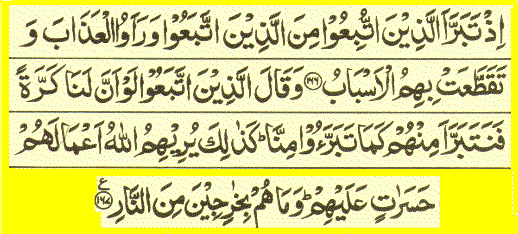 اِذْ تَبَرَّاَ الَّذِيْنَ اتُّبِعُوْا مِنَ الَّذِيْنَ اتَّبَعُوْا وَرَاَوُا الْعَذَابَ وَ
تَقَطَّعَتْ بِهِمُ الْاَسْبَابُ ﴿۱۶۶﴾ وَقَالَ الَّذِيْنَ اتَّبَعُوْا لَوْ اَنَّ لَنَا كَرَّةً
فَنَتَبَرَّاَ مِنْهُمْ كَمَا تَبَرَّءُوْا مِنَّا ؕ كَذٰلِكَ يُرِيْهِمُ اللّٰهُ اَعْمَالَهُمْ
حَسَرٰتٍ عَلَيْهِمْ ؕ وَمَا هُمْ بِخٰرِجِيْنَ مِنَ النَّارِ ﴿۱۶۷﴾ ع